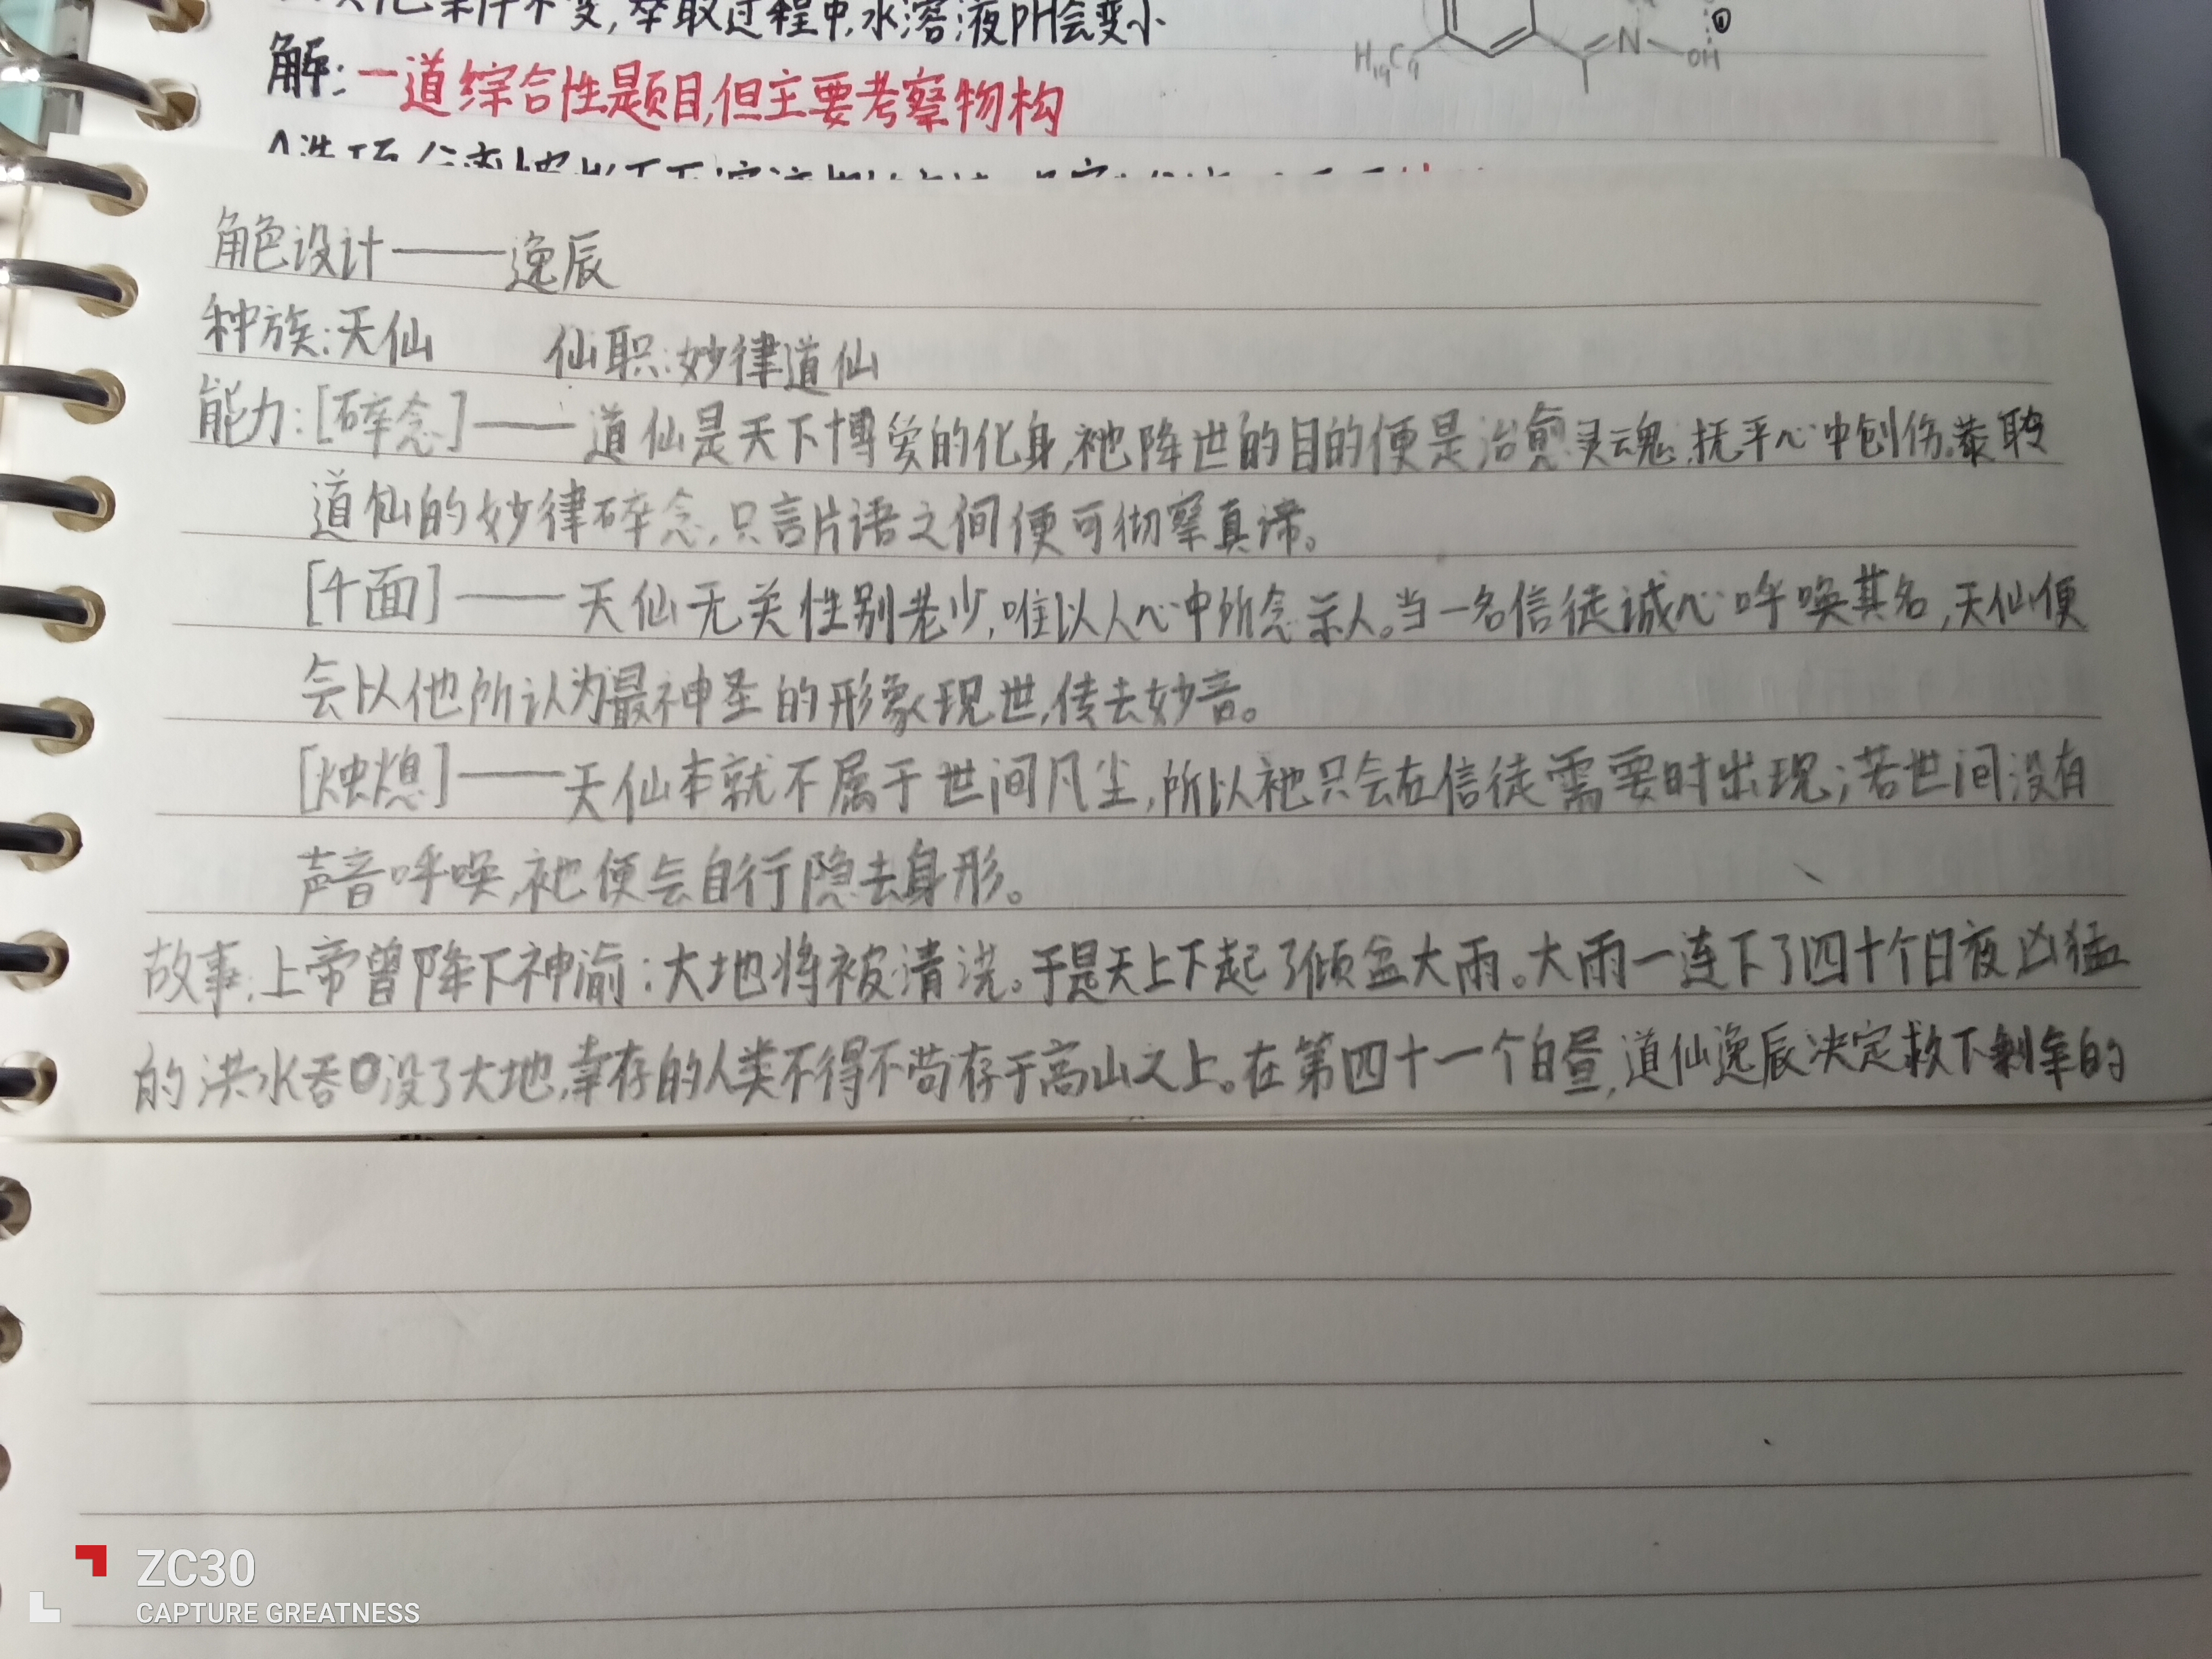 件不变,萃取过程中,水溶液pH会变小
解:一道综合性题目,但主要考察物构
H₁₉C₉
N
OH
①
角色设计——逸辰
种族:天仙 仙职:妙律道仙
能力:[碎念]——道仙是天下博爱的化身,祂降世的目的便是治愈灵魂,抚平心中创伤。恭聆
道仙的妙律碎念,只言片语之间便可彻察真谛。
[千面]——天仙无关性别老少,唯以人心中所念示人。当一名信徒诚心呼唤其名,天仙便
会以他所认为最神圣的形象现世,传去妙音。
[烛熄]——天仙本就不属于世间凡尘,所以祂只会在信徒需要时出现;若世间没有
声音呼唤,祂便会自行隐去身形。
故事:上帝曾降下神渝:大地将被清洗。于是天上下起了倾盆大雨。大雨一连下了四十个日夜,凶猛
的洪水吞没了大地,幸存的人类不得不苟存于高山之上。在第四十一个白昼,道仙逸辰决定救下剩余的
ZC30
CAPTURE GREATNESS